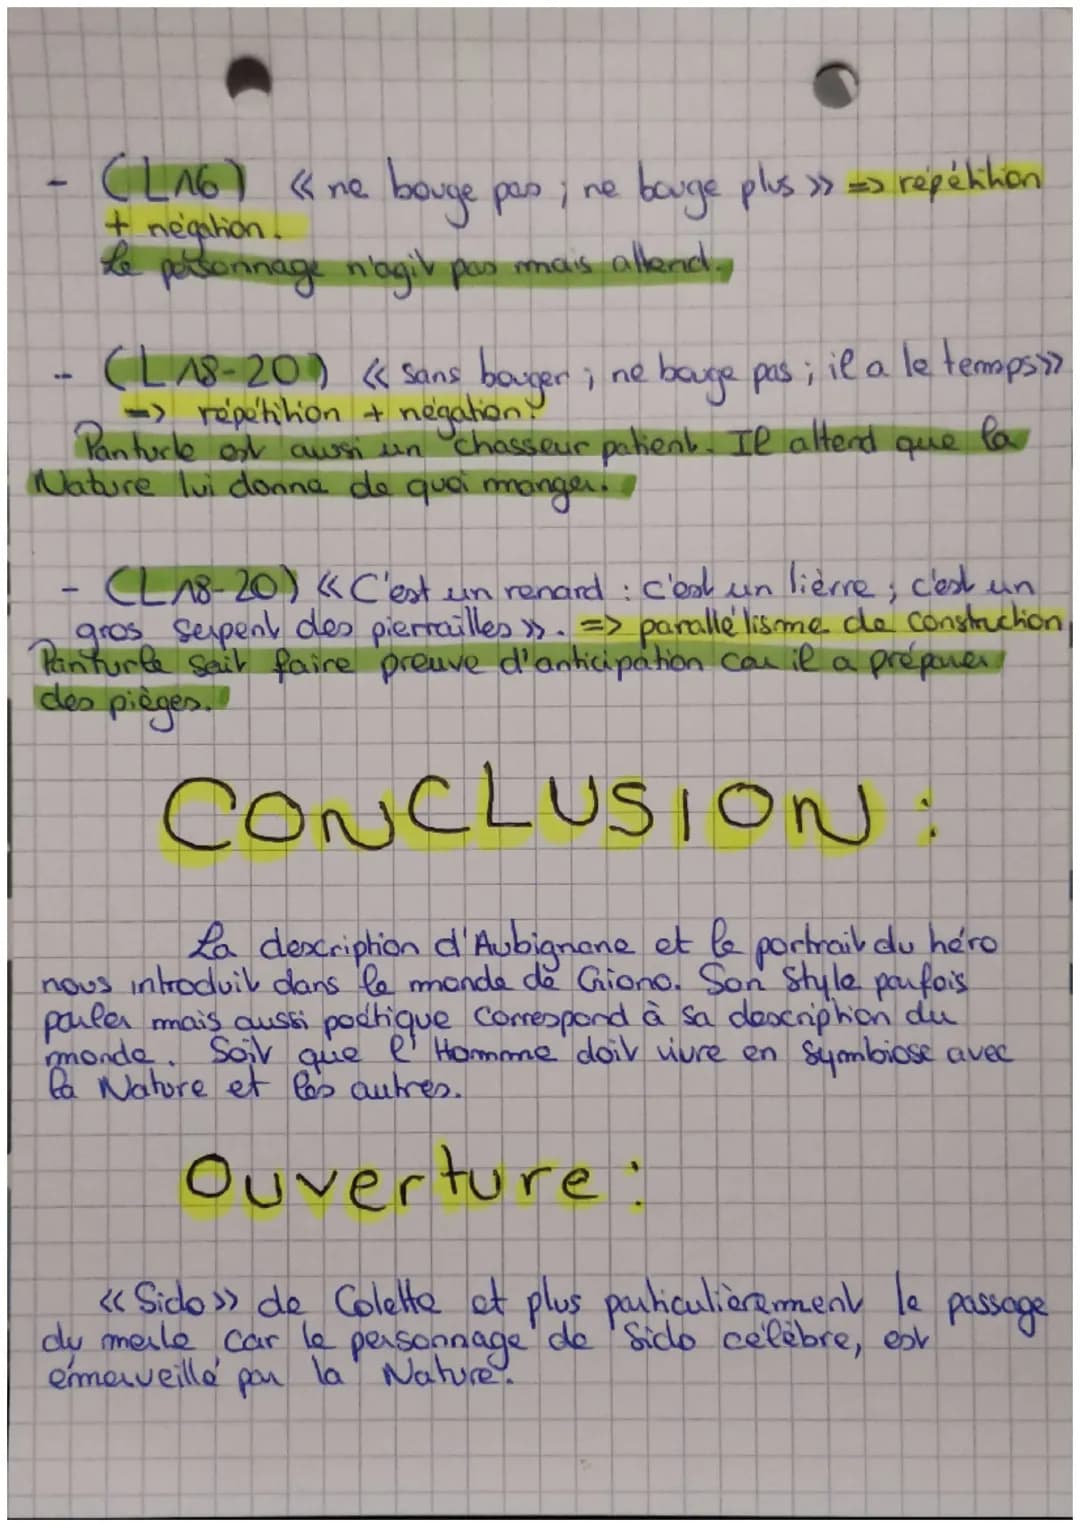 - (L16) « ne bouge pas ; ne bouge plus » => répétition
+ négation.
Le personnage n'agit pas mais attend.
- (L18-20) « sans bouger ; ne bouge pas ; il a le temps »
=> répétition + négation.
Panturle est aussi un chasseur patient. Il attend que la
Nature lui donne de quoi manger.
- (L18-20) « C'est un renard : c'est un lièvre ; c'est un
gros serpent des pierrailles ». => parallélisme de construction
Panturle sait faire preuve d'anticipation car il a préparer
des pièges.
CONCLUSION :
La description d'Aubignane et le portrait du héro
nous introduit dans le monde de Giono. Son Style parfois
parler mais aussi poétique correspond à sa description du
monde. Soit que l'Homme doit vivre en symbiose avec
la Nature et les autres.
Ouverture :
« Sido » de Colette et plus particulièrement le passage
du merle car le personnage de Sido célèbre, est
émerveillé par la Nature.